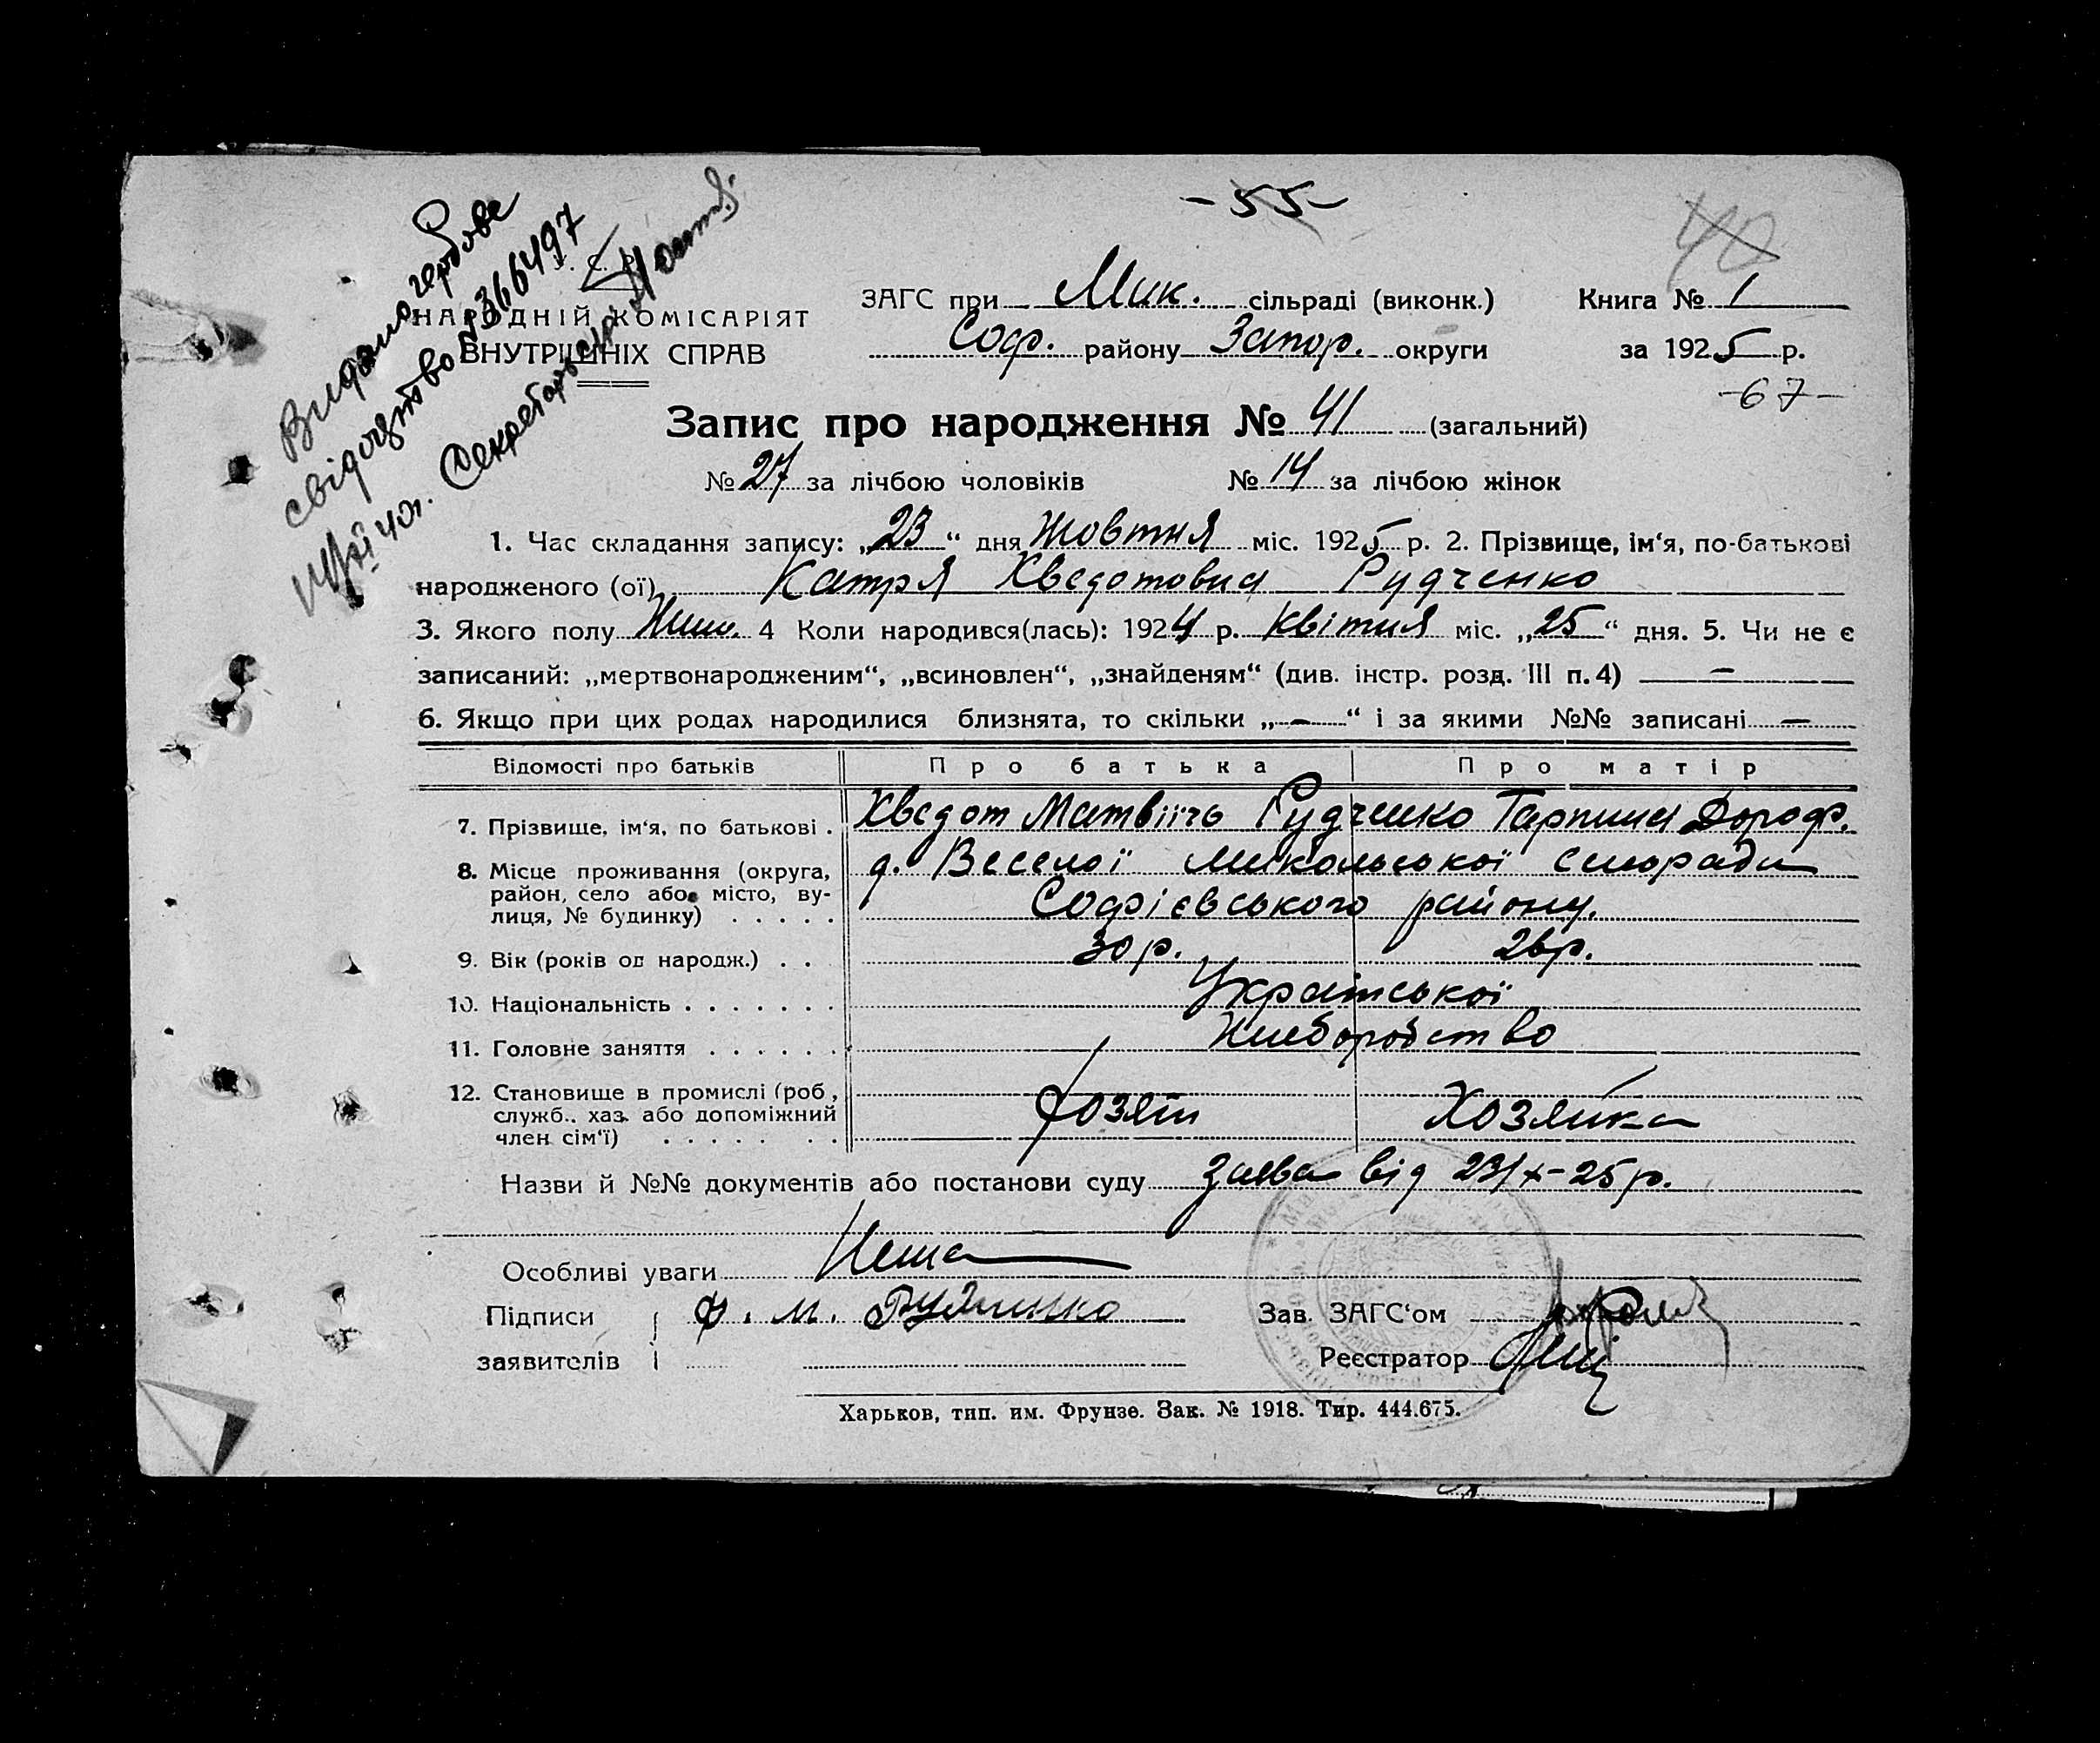 -55-
40
Видано гербове
свідоцтво 366497
У. С. Р. Р.
НАРОДНІЙ КОМІСАРІЯТ
ВНУТРІШНІХ СПРАВ
ЗАГС при Мик. сільраді (виконк.) Книга № 1
Соф. району Запор. округи за 1925 р.
-67-
Запис про народження № 41 (загальний)
№ 27 за лічбою чоловіків № 14 за лічбою жінок
1. Час складання запису: „23“ дня Жовтня міс. 1925 р. 2. Прізвище, ім‘я, по-батькові
народженого (ої) Катря Хведотовна Рудченко
3. Якого полу Жіно. 4 Коли народився(лась): 1924 р. Квітня міс. „25“ дня. 5. Чи не є
записаний: „мертвонародженим“, „всиновлен“, „знайденям“ (див. інстр. розд. III п. 4) —
6. Якщо при цих родах народилися близнята, то скільки „—“ і за якими №№ записані —
Відомості про батьків Про батька Про матір
7. Прізвище, ім‘я, по батькові . Хведот Матвіїчь Рудченко Гарпина Дороф.
8. Місце проживання (округа, д. Веселої Микольської сільради
район, село або місто, ву- Софієвського району.
лиця, № будинку) . . . . .
9. Вік (років од народж.) . . 30 р. 26 р.
10. Національність . . . . . . . Української
11. Головне заняття . . . . . . Хліборобство
12. Становище в промислі (роб.,
служб., хаз. або допоміжний Хозяїн Хозяйка
член сім‘ї) . . . . . . .
Назви й №№ документів або постанови суду Заява від 23/X-25 р.
Особливі уваги Нема
Підписи Ф. М. Рудченко Зав. ЗАГС‘ом
заявителів Реєстратор
Харьков, тип. им. Фрунзе. Зак. № 1918. Тир. 444.675.